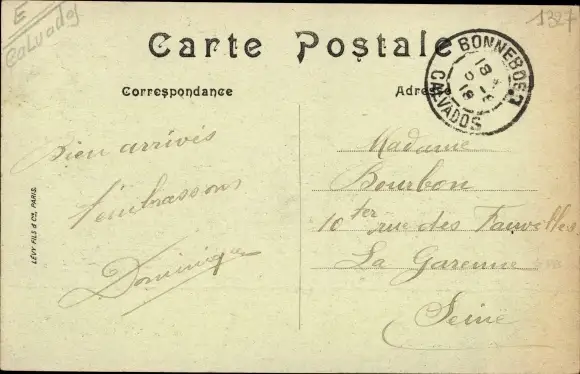 E
Calvados
1327
Carte Postale
Correspondance
Adresse
BONNEBOSQ
18
CALVADOS
Bien arrivés
t'embrassons
Dominique
Madame
Bourbon
10 ter rue des Fauvelles
La Garenne
Seine
LÉVY FILS & Cie, PARIS.